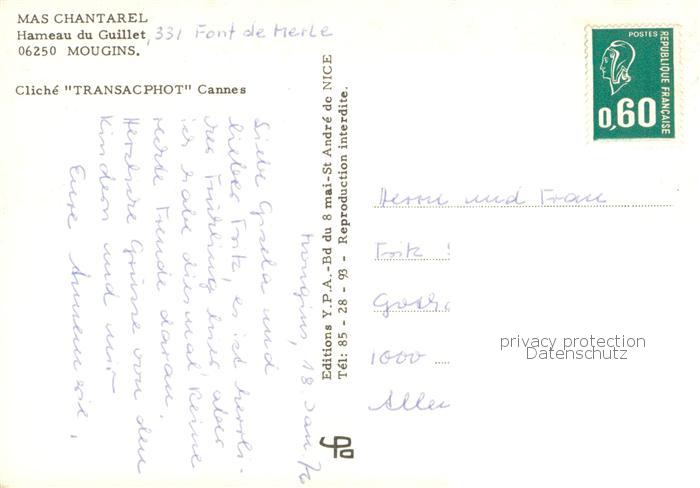 MAS CHANTAREL
Hameau du Guillet, 331 Font de Merle
06250 MOUGINS.
Cliché "TRANSACPHOT" Cannes
Mougins, 18. Jan. 76
Liebe Gisela und
lieber Fritz, es ist herrli-
cher Frühling hier, aber
ich habe diesmal keine
rechte Freude daran.
Herzliche Grüsse von den
Kindern und mir
Eure Annemarie.
Editions Y.P.A.-Bd du 8 mai-St André de NICE
Tél: 85-28-93 - Reproduction interdite.
ypa
POSTES
REPUBLIQUE FRANÇAISE
0,60
Herrn und Frau
Fritz
1000
privacy protection
Datenschutz